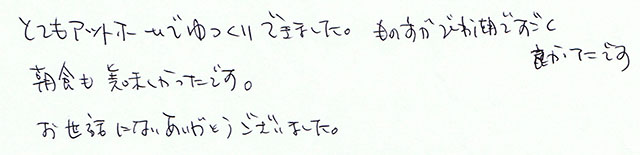 とてもアットホームでゆっくりできました。びわ湖ですごく
良かったです
朝食も美味しかったです。
お世話になりありがとうございました。